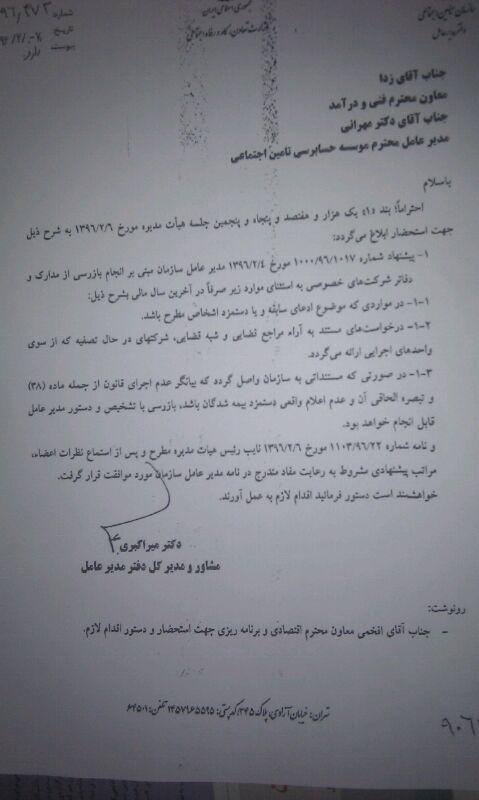 جمهوری اسلامی ایران
وزارت تعاون، کار و رفاه اجتماعی
سازمان تامین اجتماعی
دفتر مدیرعامل
شماره:
تاریخ
پیوست
دارد
جناب آقای زدا
معاون محترم فنی و درآمد
جناب آقای دکتر مهرانی
مدیر عامل محترم موسسه حسابرسی تامین اجتماعی
باسلام
احتراماً؛ بند «۱» یک هزار و هفتصد و پنجاه و پنجمین جلسه هیأت مدیره مورخ ۱۳۹۶/۲/۶ به شرح ذیل
جهت استحضار ابلاغ می‌گردد:
۱- پیشنهاد شماره ۱۰۰۰/۹۶/۱۰۱۷ مورخ ۱۳۹۶/۲/۴ مدیر عامل سازمان مبنی بر انجام بازرسی از مدارک و
دفاتر شرکت‌های خصوصی به استثنای موارد زیر صرفاً در آخرین سال مالی بشرح ذیل:
۱-۱- در مواردی که موضوع ادعای سابقه و یا دستمزد اشخاص مطرح باشد.
۱-۲- درخواست‌های مستند به آراء مراجع قضایی و شبه قضایی، شرکتهای در حال تصفیه که از سوی
واحدهای اجرایی ارائه می‌گردد.
۱-۳- در صورتی که مستنداتی به سازمان واصل گردد که بیانگر عدم اجرای قانون از جمله ماده (۳۸)
و تبصره الحاقی آن و عدم اعلام واقعی دستمزد بیمه شدگان باشد، بازرسی با تشخیص و دستور مدیر عامل
قابل انجام خواهد بود.
و نامه شماره ۱۱۰۳/۹۶/۲۲ مورخ ۱۳۹۶/۲/۶ نایب رئیس هیات مدیره مطرح و پس از استماع نظرات اعضاء،
مراتب پیشنهادی مشروط به رعایت مفاد مندرج در نامه مدیر عامل سازمان مورد موافقت قرار گرفت.
خواهشمند است دستور فرمائید اقدام لازم به عمل آورند.
دکتر میراکبری
مشاور و مدیر کل دفتر مدیر عامل
رونوشت:
- جناب آقای افخمی معاون محترم اقتصادی و برنامه ریزی جهت استحضار و دستور اقدام لازم.
تهران: خیابان آزادی، پلاک ۳۴۵، کدپستی: ۱۴۵۷۹۶۵۵۹۵ تلفن: ۶۴۵۰۱